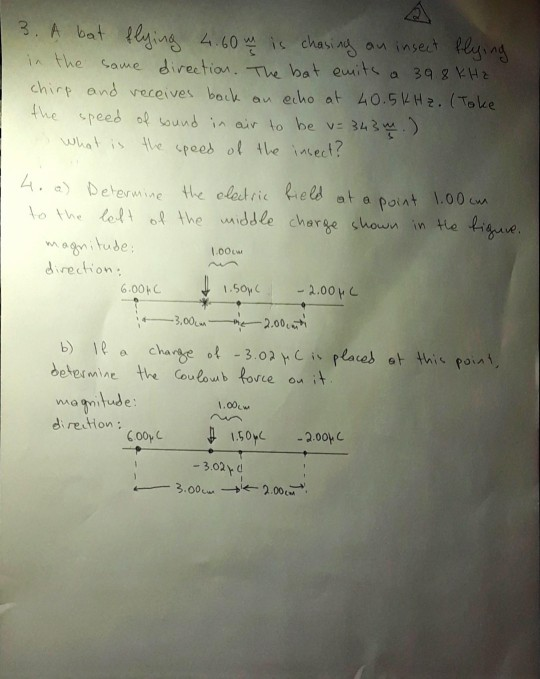 2
3. A bat flying 4.60 m/s is chasing an insect flying
in the same direction. The bat emits a 39.8 KHz
chirp and receives back an echo at 40.5 KHz. (Take
the speed of sound in air to be v= 343 m/s.)
What is the speed of the insect?
4. a) Determine the electric field at a point 1.00 cm
to the left of the middle charge shown in the figure.
magnitude:
direction:
1.00cm
6.00μC 1.50μC -2.00μC
3.00cm 2.00cm
b) If a charge of -3.02 μC is placed at this point,
determine the Coulomb force on it.
magnitude:
direction:
1.00cm
6.00μC 1.50μC -2.00μC
-3.02μC
3.00cm 2.00cm